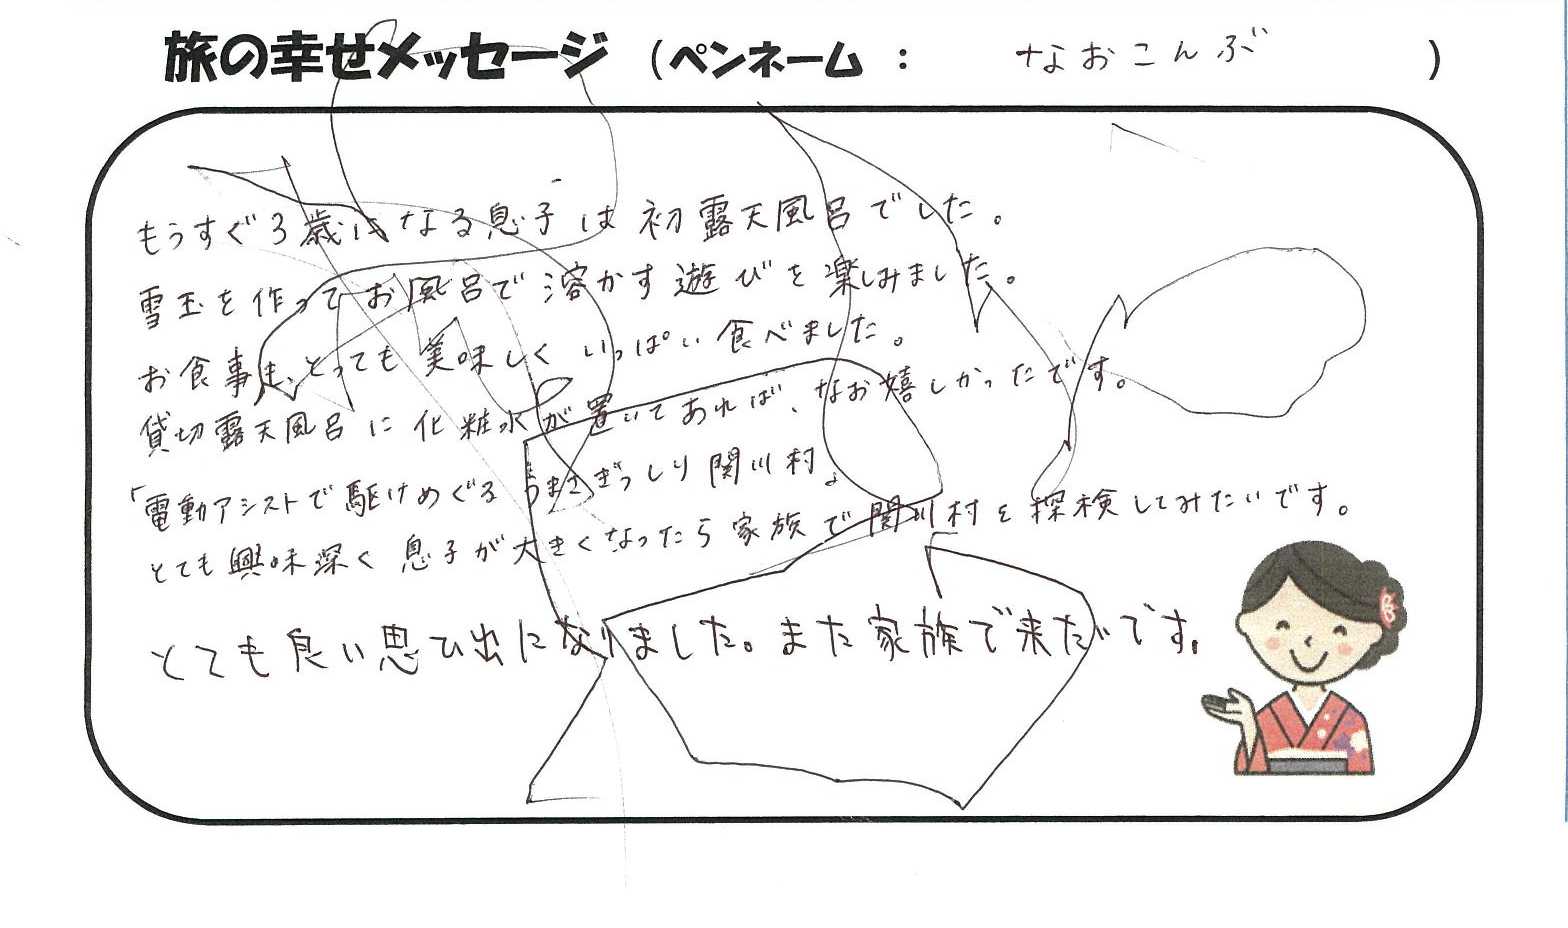 旅の幸せメッセージ （ペンネーム ： なおこんぶ ）
もうすぐ3歳になる息子は初露天風呂でした。
雪玉を作ってお風呂で溶かす遊びを楽しみました。
お食事も、とっても美味しくいっぱい食べました。
貸切露天風呂に化粧水が置いてあれば、なお嬉しかったです。
「電動アシストで駆けめぐる うまさぎっしり関川村」
とても興味深く息子が大きくなったら家族で関川村を探検してみたいです。
とても良い思ひ出になりました。また家族で来たいです。